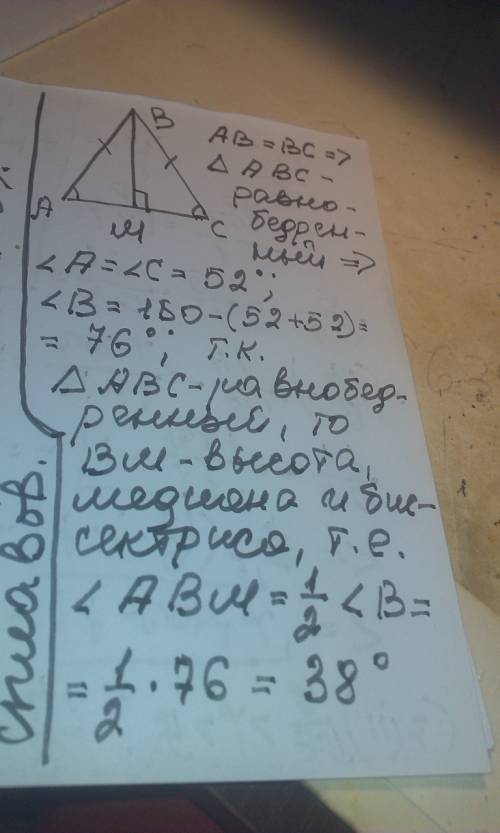 B
A
M
C
AB = BC =>
△ ABC -
равно-
бедрен-
ный =>
∠A = ∠C = 52°;
∠B = 180-(52+52)=
= 76°; т.к.
△ ABC-равнобед-
ренный, то
BM-высота,
медиана и бис-
сектриса, т.е.
∠ ABM = 1/2 ∠B =
= 1/2 · 76 = 38°